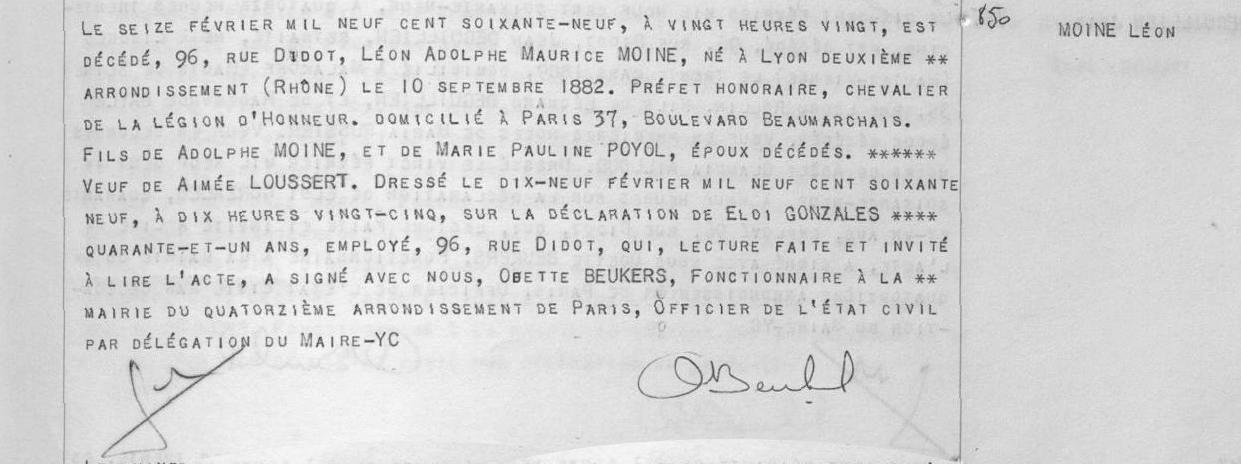 850
MOINE LÉON
LE SEIZE FÉVRIER MIL NEUF CENT SOIXANTE-NEUF, À VINGT HEURES VINGT, EST
DÉCÉDÉ, 96, RUE DIDOT, LÉON ADOLPHE MAURICE MOINE, NÉ À LYON DEUXIÈME **
ARRONDISSEMENT (RHÔNE) LE 10 SEPTEMBRE 1882. PRÉFET HONORAIRE, CHEVALIER
DE LA LÉGION D'HONNEUR. DOMICILIÉ À PARIS 37, BOULEVARD BEAUMARCHAIS.
FILS DE ADOLPHE MOINE, ET DE MARIE PAULINE POYOL, ÉPOUX DÉCÉDÉS. ******
VEUF DE AIMÉE LOUSSERT. DRESSÉ LE DIX-NEUF FÉVRIER MIL NEUF CENT SOIXANTE
NEUF, À DIX HEURES VINGT-CINQ, SUR LA DÉCLARATION DE ELOI GONZALES ****
QUARANTE-ET-UN ANS, EMPLOYÉ, 96, RUE DIDOT, QUI, LECTURE FAITE ET INVITÉ
À LIRE L'ACTE, A SIGNÉ AVEC NOUS, ODETTE BEUKERS, FONCTIONNAIRE À LA **
MAIRIE DU QUATORZIÈME ARRONDISSEMENT DE PARIS, OFFICIER DE L'ÉTAT CIVIL
PAR DÉLÉGATION DU MAIRE-YC